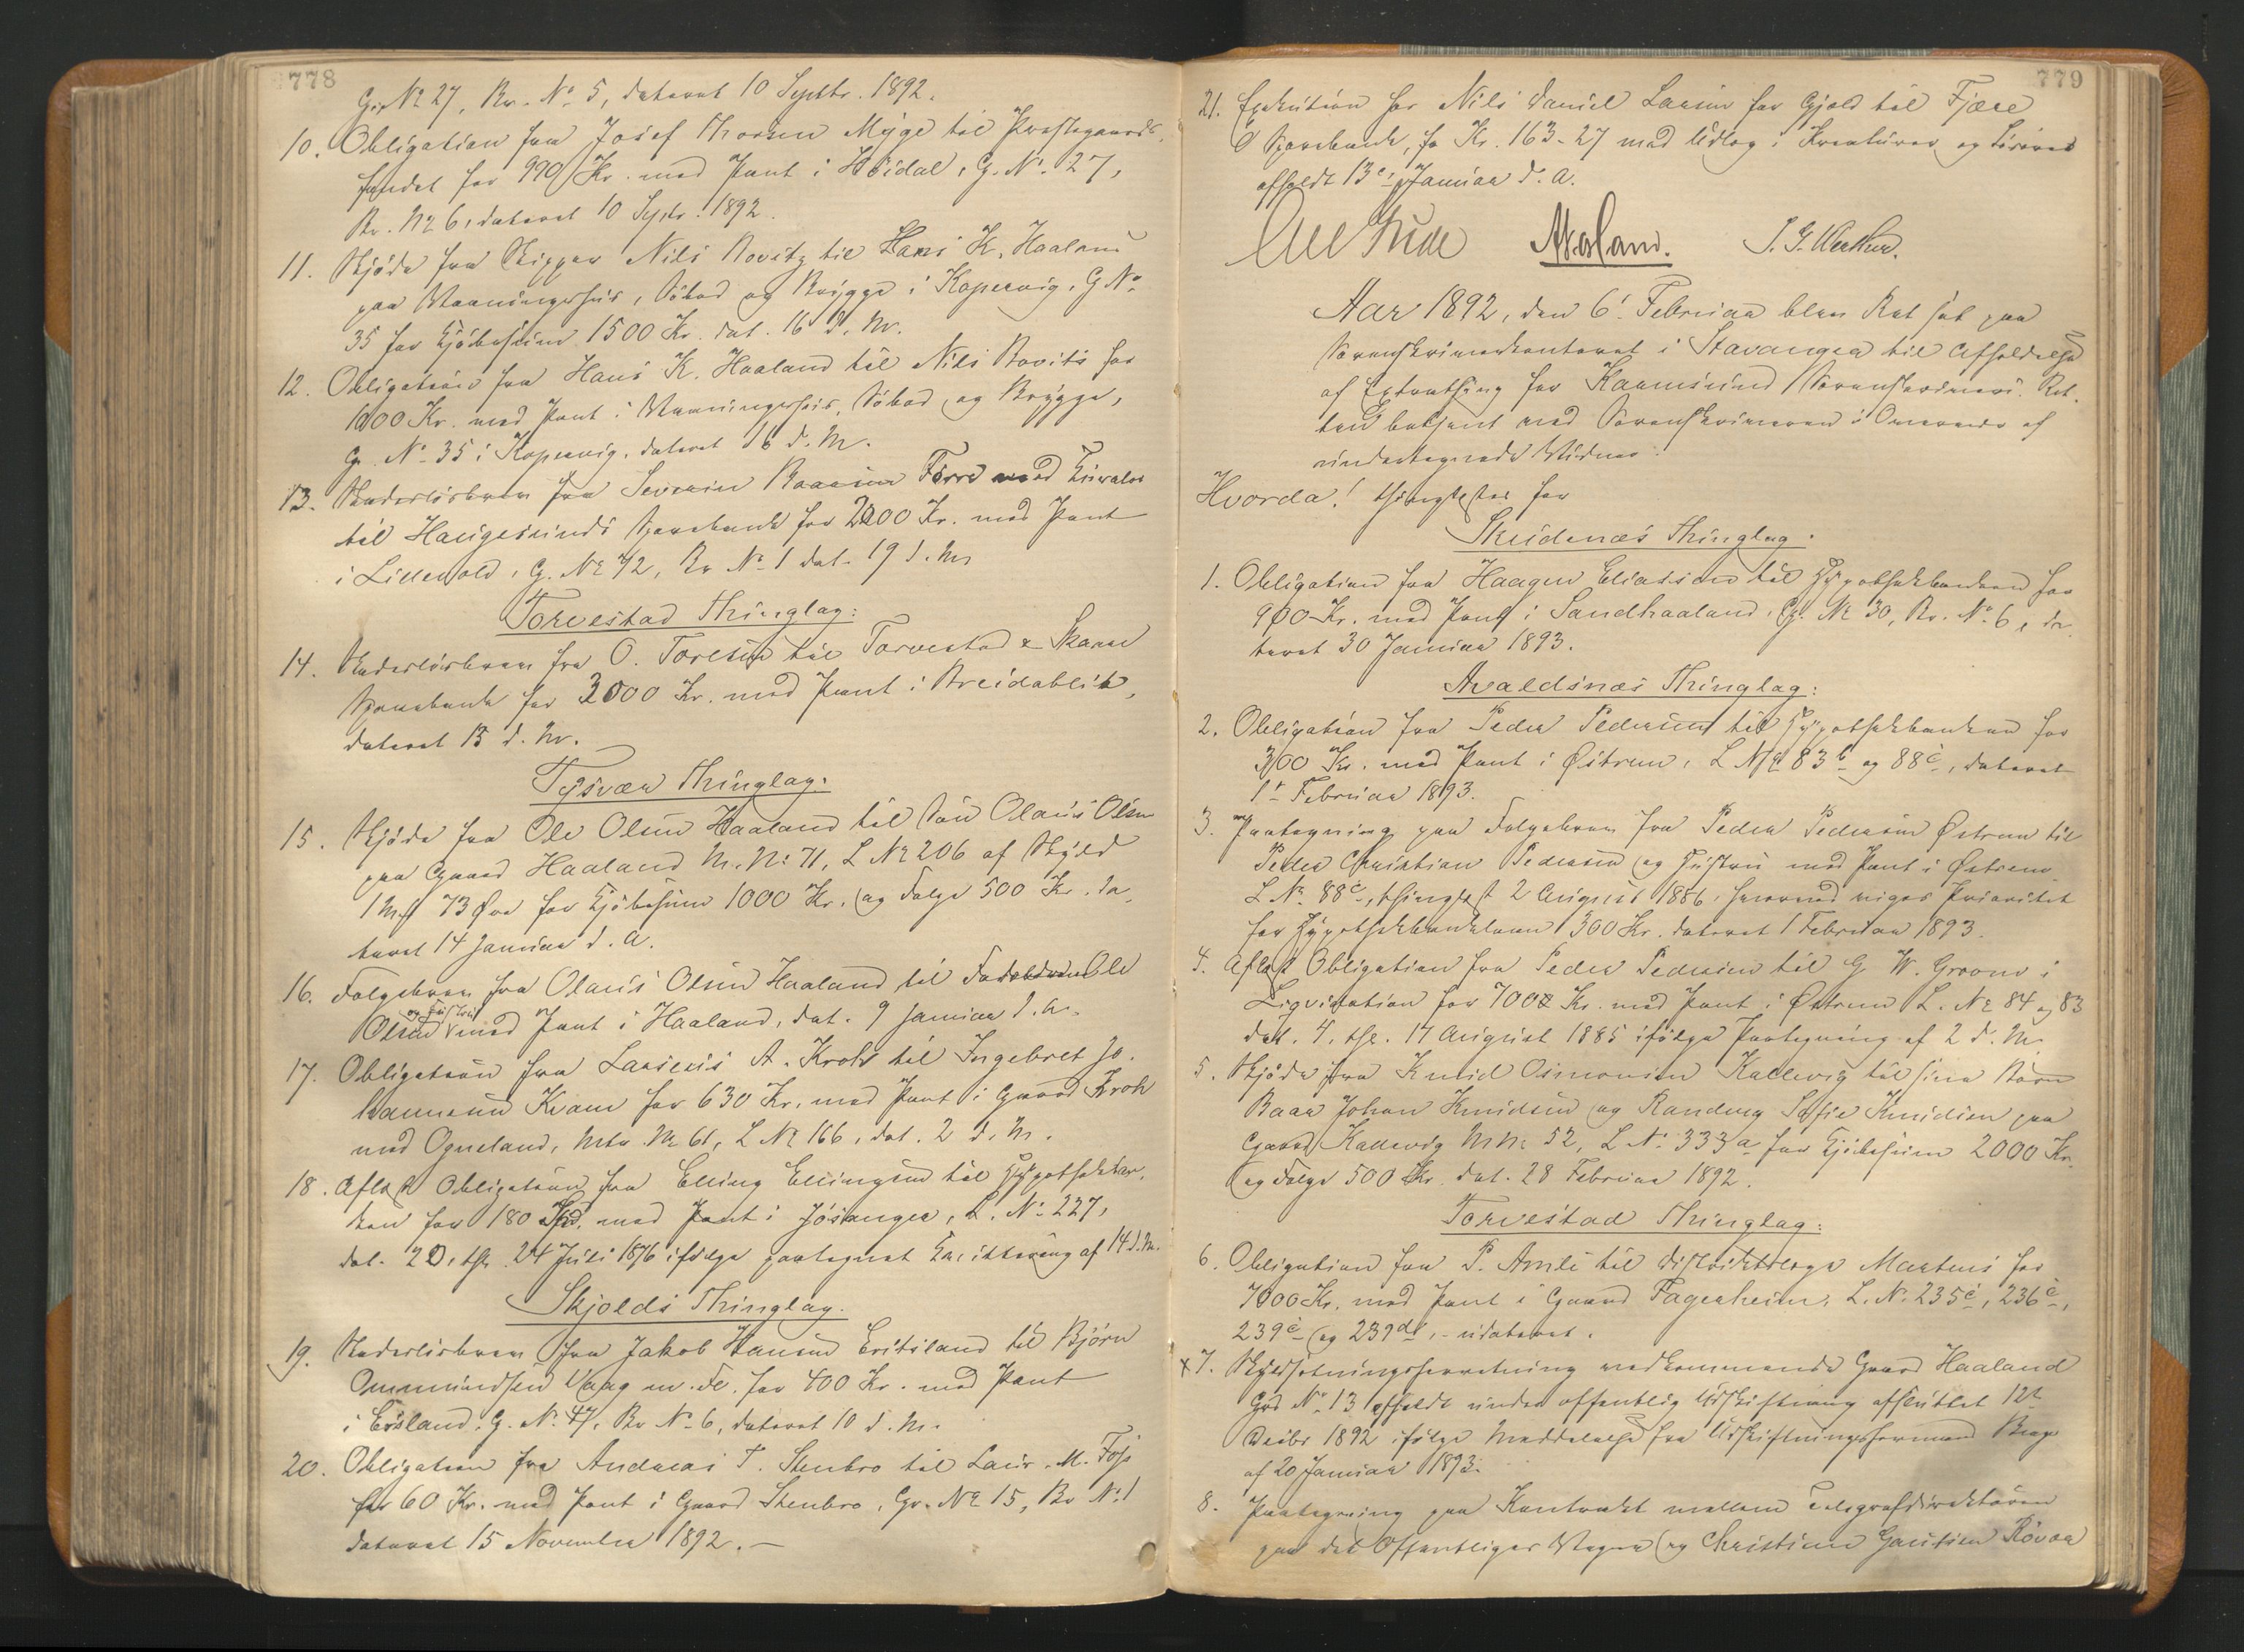 778
G. № 27, Br. № 5, dateret 10 Septbr. 1892.
10. Obligation fra Josef Thorsen Myge til Præstegaards-
fondet for 990 Kr. med Pant i Höidal, G. № 27,
Br. № 6, dateret 10 Septr. 1892.
11. Skjöde fra Skipper Nils Rovitz til Hans K. Haaland
paa Vaaningshus, Söbod og Brygge i Kopervig, G №
35 for Kjöbesum 1500 Kr. dat. 16 d. M.
12. Obligation fra Hans K. Haaland til Nils Rovits for
1000 Kr. med Pant i Vaaningshus, Söbod og Brygge,
G. № 35 i Kopervig, dateret 16 d. M.
13. Skadeslösbrev fra Severin Förre med
til Haugesunds Sparebank for 2000 Kr. med Pant
i G. № 42, Br № 1 dat. 19 d. M.
Torvestad Thinglag:
14. Skadeslösbrev fra O. Toresen til Torvestad & Skaare
Sparebank for 3000 Kr. med Pant i Breidablik,
dateret 13 d. M.
Tysvær Thinglag.
15. Skjöde fra Ole Olsen Haaland til Sön Olaus Olsen
paa Gaard Haaland M. № 71, L № 206 af Skyld
1 Mk 73 Öre for Kjöbesum 1000 Kr. og Folge 500 Kr. da-
teret 14 Januar d. A.
16. Folgebrev fra Olaus Olsen Haaland til Ole
og Hustru
Olsen med Pant i Haaland, dat. 9 Januar d. A.
17. Obligation fra A. Kroh til Ingebret Jo-
hannesen Kvam for 630 Kr. med Pant i Gaard Kroh
med Ogneland, Mtr № 61, L № 166, dat. 2 d. M.
18. Aflöst Obligation fra Elling Ellingsen til Hypothekban-
ken for 180 Spd. med Pant i Jösanger, L. № 227,
dat. 20, thl. 24 Juli 1876 ifölge paategnet Kvittering af 14 d. M.
Skjolds Thinglag.
19. Skadeslösbrev fra Jakob Hansen til Björn
Ommundsen Vaag m. Fl. for 400 Kr. med Pant
i G. № 47, Br № 6, dateret 10 d. M.
20. Obligation fra Andreas T. Stenbro til Laur. M. Fos
for 60 Kr. med Pant i Gaard Stenbro, Gr. № 15, Br № 1
dateret 15 November 1892. —
779
21. Exekution hos Nils Daniel Larsen for Gjæld til
Sparebank, for Kr. 163-27 med Udlog i Kreaturer og Lösöre
afholdt 13de Januar d. A.
Aar 1892, den 6. Februar blev Ret sat paa
Sorenskriverkontoret i Stavanger til Afholdelse
af Extrathing for Karmsund Sorenskriveri. Ret-
ten betjent med Sorenskriveren i Overvær af
undertegnede Vidner.
Hvorda! thinglæstes for
Skudenæs Thinglag.
1. Obligation fra Haagen Eliassen til Hypothekbanken for
900 Kr. med Pant i Sandhaaland, G. № 30, Br. № 6, da-
teret 30 Januar 1893.
Avaldsnæs Thinglag:
2. Obligation fra Peder Pedersen til Hypothekbanken for
300 Kr. med Pant i Østrem, L № 83 b og 88 c, dateret
1ste Februar 1893.
3. Paategning paa Folgebrev fra Peder Pedersen Østrem til
Peder Christian Pedersen og Hustru med Pant i Østrem
L № 88 c, thinglæst 2 August 1886, hvorved viges Prioritet
for Hypothekbanklaan 300 Kr. dateret 1 Februar 1893.
4. Aflöst Obligation fra Peder Pedersen til G W. i
Liqvidation for 7002 Kr. med Pant i Østrem L. № 84 og 83
dat. 4, thl. 17 August 1885 ifölge Paategning af 2 d. M.
5. Skjöde fra Knud Osmonsen Kallevig til sine Börn
Baar Johan Knudsen og Randvig Sofie Knudsen paa
Gaard Kallevig M № 52, L № 333 a for Kjöbesum 2000 Kr.
og Folge 500 Kr. dat. 28 Februar 1892.
Torvestad Thinglag:
6. Obligation fra P. Amli til Distriktslæge Martens for
7000 Kr. med Pant i Gaard Fagerheim, L. № 235 c, 236 c,
239 c og 239 d, - udateret.
x 7. Skyldsætningsforretning vedkommende Gaard Haaland
Grd № 13 afholdt under offentlig Udskiftning afsluttet 12te
Decbr 1892 ifölge Meddelelse fra Udskiftningsformand
af 20 Januar 1893.
8. Paategning paa Kontrakt mellem Telegrafdirektören
paa det Offentliges Vegne og Christian Gautsen Rövær